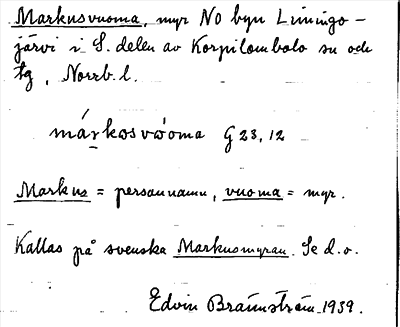 Markusvuoma, myr NO byn Liningo-
järvi i S. delen av Korpilombolo sn och
tg, Norrb. l.
márkosvooma G 23, 12
Markus = personnamn, vuoma = myr.
Kallas på svenska Markusmyran. Se d. o.
Edvin Brännström. 1939.